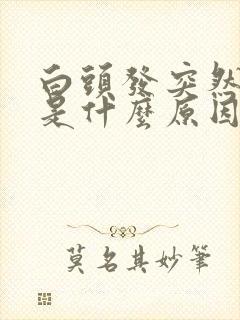 白頭發突然
是什麼原因
莫名其妙筆